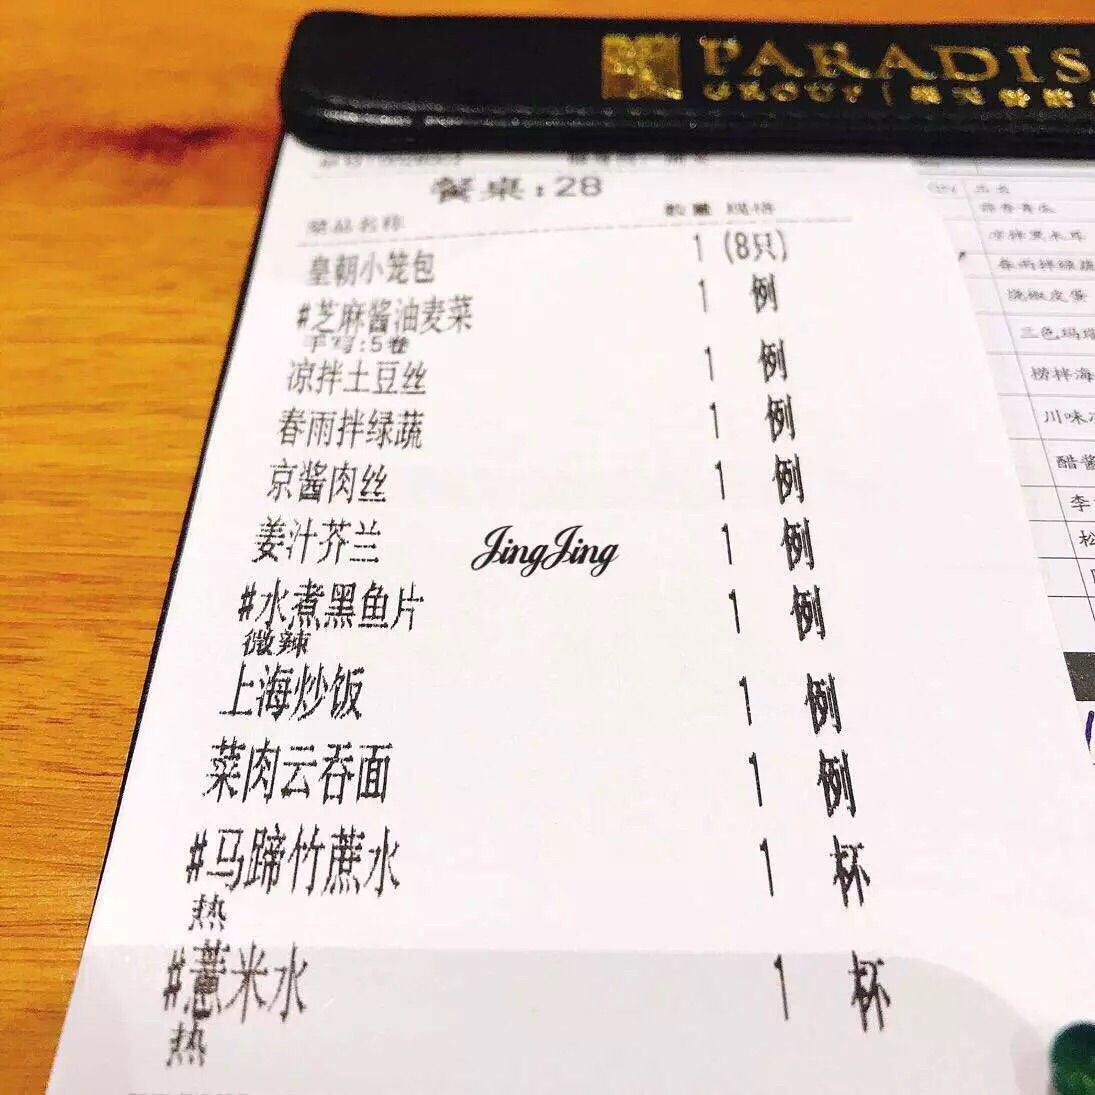 PARADIS
GROUP
餐桌:28
菜品名称 数量 规格
皇朝小笼包 1 (8只)
#芝麻酱油麦菜 1 例
手写:5卷
凉拌土豆丝 1 例
春雨拌绿蔬 1 例
京酱肉丝 1 例
姜汁芥兰 1 例
JingJing
#水煮黑鱼片 1 例
微辣
上海炒饭 1 例
菜肉云吞面 1 例
#马蹄竹蔗水 1 杯
热
#薏米水 1 杯
热
春雨拌绿蔬
烧椒皮蛋
三色玛瑙
捞拌海
川味
醋酱
李
松